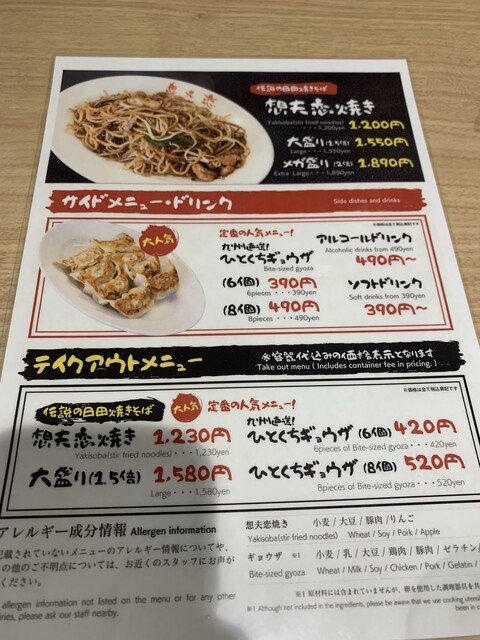 想夫恋
伝説の日田焼きそば
想夫恋焼き
Yakisoba(stir fried noodles)
・・・1,200yen
1,200円
大盛り(1.5倍) 1,550円
Large・・・1,550yen
メガ盛り(2倍) 1,890円
Extra Large・・・1,890yen
サイドメニュー・ドリンク
Side dishes and drinks
※価格は全て税込表記です
大人気
定番の人気メニュー!
九州直送!
ひとくちギョウザ
Bite-sized gyoza
(6個) 390円
6pieces・・・390yen
(8個) 490円
8pieces・・・490yen
アルコールドリンク
Alcoholic drinks from 490yen
490円~
ソフトドリンク
Soft drinks from 390yen
390円~
テイクアウトメニュー
※容器代込みの価格表示となります
Take out menu ( Includes container fee in pricing. )
※価格は全て税込表記です
伝説の日田焼きそば
大人気
定番の人気メニュー!
想夫恋焼き 1,230円
Yakisoba(stir fried noodles)・・・1,230yen
大盛り(1.5倍) 1,580円
Large・・・1,580yen
九州直送!
ひとくちギョウザ (6個) 420円
6pieces of Bite-sized gyoza・・・420yen
ひとくちギョウザ (8個) 520円
8pieces of Bite-sized gyoza・・・520yen
アレルギー成分情報 Allergen information
記載されていないメニューのアレルギー情報についてや、
の他のご不明点については、お近くのスタッフにお声が
ください。
allergen information not listed on the menu or for any other
please ask our staff nearby.
想夫恋焼き 小麦 / 大豆 / 豚肉 / りんご
Yakisoba(stir fried noodles) Wheat / Soy / Pork / Apple
ギョウザ ※1 小麦 / 乳 / 大豆 / 鶏肉 / 豚肉 / ゼラチン
Bite-sized gyoza Wheat / Milk / Soy / Chicken / Pork / Gelatin /
※1 原材料には含まれていませんが、卵を使用した調理器具を
※1 Although not included in the ingredients, please be aware that we use cooking
been in